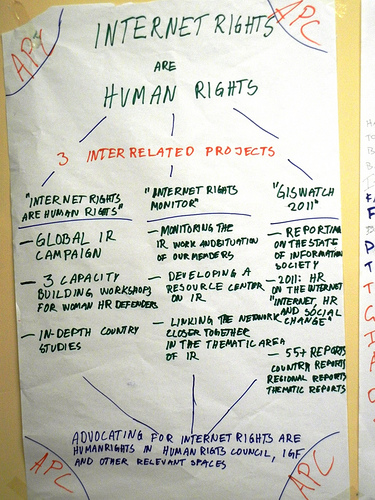 APC
APC
INTERNET RIGHTS
ARE
HUMAN RIGHTS
3 INTERRELATED PROJECTS
"INTERNET RIGHTS
ARE HUMAN RIGHTS"
- GLOBAL IR
CAMPAIGN
- 3 CAPACITY
BUILDING WORKSHOPS
FOR WOMAN HR DEFENDERS
- IN-DEPTH COUNTRY
STUDIES
"INTERNET RIGHTS
MONITOR"
- MONITORING THE
IR WORK AND SITUATION
OF OUR MEMBERS
- DEVELOPING A
RESOURCE CENTER
ON IR
- LINKING THE NETWORK
CLOSER TOGETHER
IN THE THEMATIC AREA
OF IR
"GISWATCH
2011"
- REPORTING
ON THE STATE
OF INFORMATION
SOCIETY
- 2011: HR
ON THE INTERNET
"INTERNET, HR
AND SOCIAL
CHANGE"
- 55+ REPORTS
COUNTRY REPORTS
REGIONAL REPORTS
THEMATIC REPORTS
ADVOCATING FOR INTERNET RIGHTS ARE
HUMAN RIGHTS IN HUMAN RIGHTS COUNCIL, IGF
AND OTHER RELEVANT SPACES
APC
APC